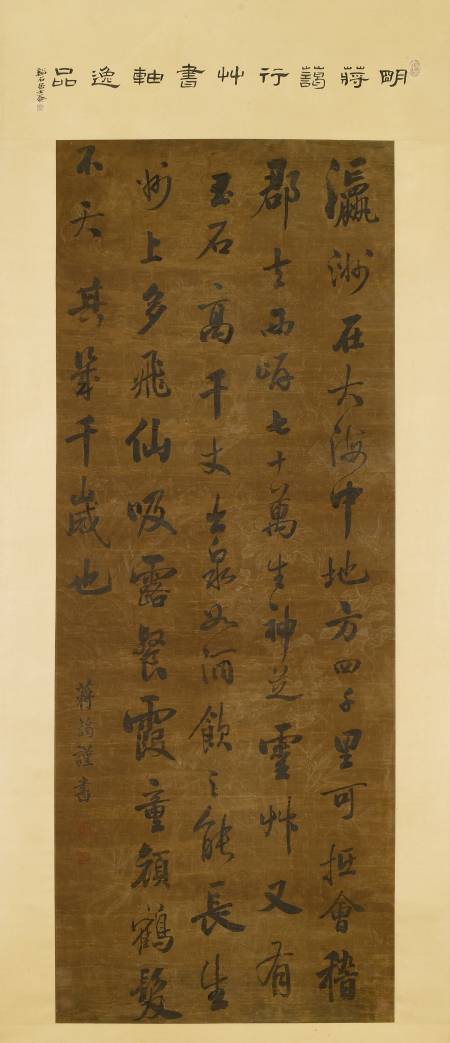 明蔣藹行艸書軸逸品
瀛洲在大海中地方四千里可抵會稽
郡去西岸七十萬生神芝靈艸又有
玉石高千丈出泉如酒飲之能長生
洲上多飛仙吸露餐霞童顏鶴髮
不夭其筭千歲也
蔣藹謹書